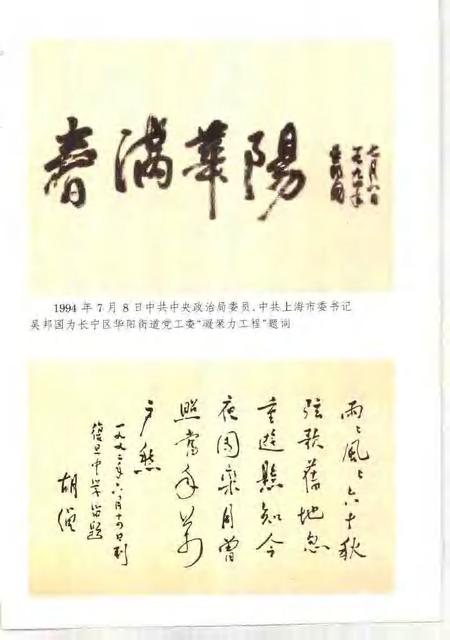 春滿華陽
吴邦国
一九九四年
七月八日
1994 年 7 月 8 日中共中央政治局委员、中共上海市委书记
吴邦国为长宁区华阳街道党工委“凝聚力工程”题词
雨〻風〻六十秋
弦歌舊地忽
重遊懸知今
夜圓欒月曾
照當年萬
戶愁
一九九二年六月十四日到
復旦中學留題
胡绳